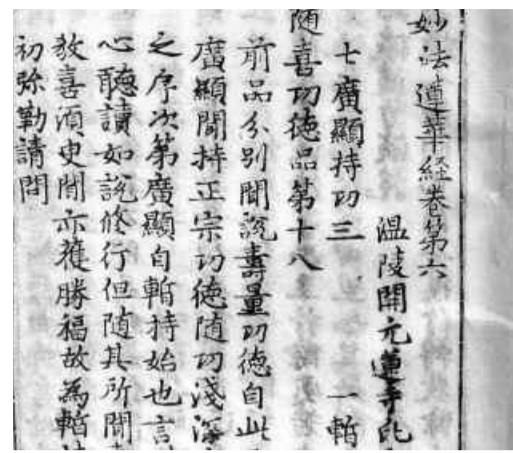 妙法蓮華経卷第六
温陵開元蓮寺比
七廣顯持功三 一暫
随喜功徳品第十八
前品分別聞說壽量功徳自此
廣顯聞持正宗功徳随功淺深
之序次第廣顯自暫持始也言
心聽讀如說修行但随其所聞
敎喜須臾聞亦獲勝福故為暫持
初弥勒請問